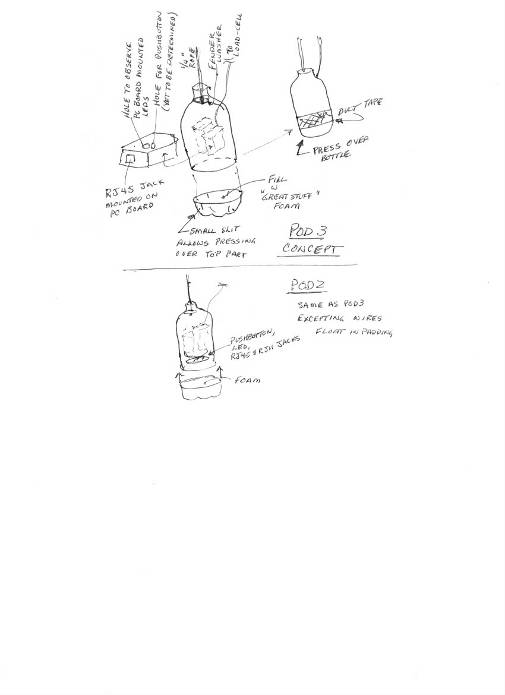 HOLE TO OBSERVE
PC BOARD MOUNTED
LEDS
HOLE FOR PUSHBUTTON
(YET TO BE DETERMINED)
1/4"
ROPE
FENDER
WASHER
TO
LOAD-CELL
RJ45 JACK
MOUNTED ON
PC BOARD
DUCT TAPE
PRESS OVER
BOTTLE
FILL
W
"GREAT STUFF"
FOAM
SMALL SLIT
ALLOWS PRESSING
OVER TOP PART
POD 3
CONCEPT
POD2
SAME AS POD3
EXCEPTING WIRES
FLOAT IN PADDING
PUSHBUTTON,
LED,
RJ45 & RJ11 JACKS
FOAM